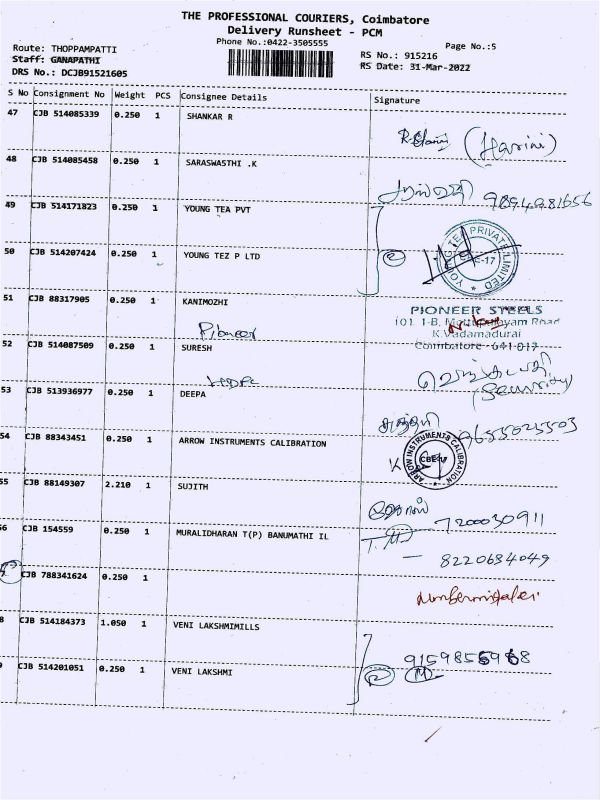 THE PROFESSIONAL COURIERS, Coimbatore
Delivery Runsheet - PCM
Phone No.:0422-3505555
Page No.:5
Route: THOPPAMPATTI
Staff: GANAPATHI
DRS No.: DCJB91521605
RS No.: 915216
RS Date: 31-Mar-2022
S No Consignment No Weight PCS Consignee Details Signature
47 CJB 514085339 0.250 1 SHANKAR R
(Harini)
48 CJB 514085458 0.250 1 SARASWASTHI .K
சரஸ்வதி 9894981656
49 CJB 514171823 0.250 1 YOUNG TEA PVT
50 CJB 514207424 0.250 1 YOUNG TEZ P LTD
② YOUNG TEA PRIVATE LIMITED
51 CJB 88317905 0.250 1 KANIMOZHI
PIONEER STEELS
101, 1-B, Mettupalayam Road
K.Vadamadurai
Coimbatore - 641 017
Pioneer
52 CJB 514087509 0.250 1 SURESH
(Security)
53 CJB 513936977 0.250 1 DEEPA
9655025503
54 CJB 88343451 0.250 1 ARROW INSTRUMENTS CALIBRATION
ARROW INSTRUMENTS CALIBRATION
55 CJB 88149307 2.210 1 SUJITH
7200030911
56 CJB 154559 0.250 1 MURALIDHARAN T(P) BANUMATHI IL
T. M
8220684049
CJB 788341624 0.250 1
8 CJB 514184373 1.050 1 VENI LAKSHMIMILLS
9159855968
9 CJB 514201051 0.250 1 VENI LAKSHMI
② M